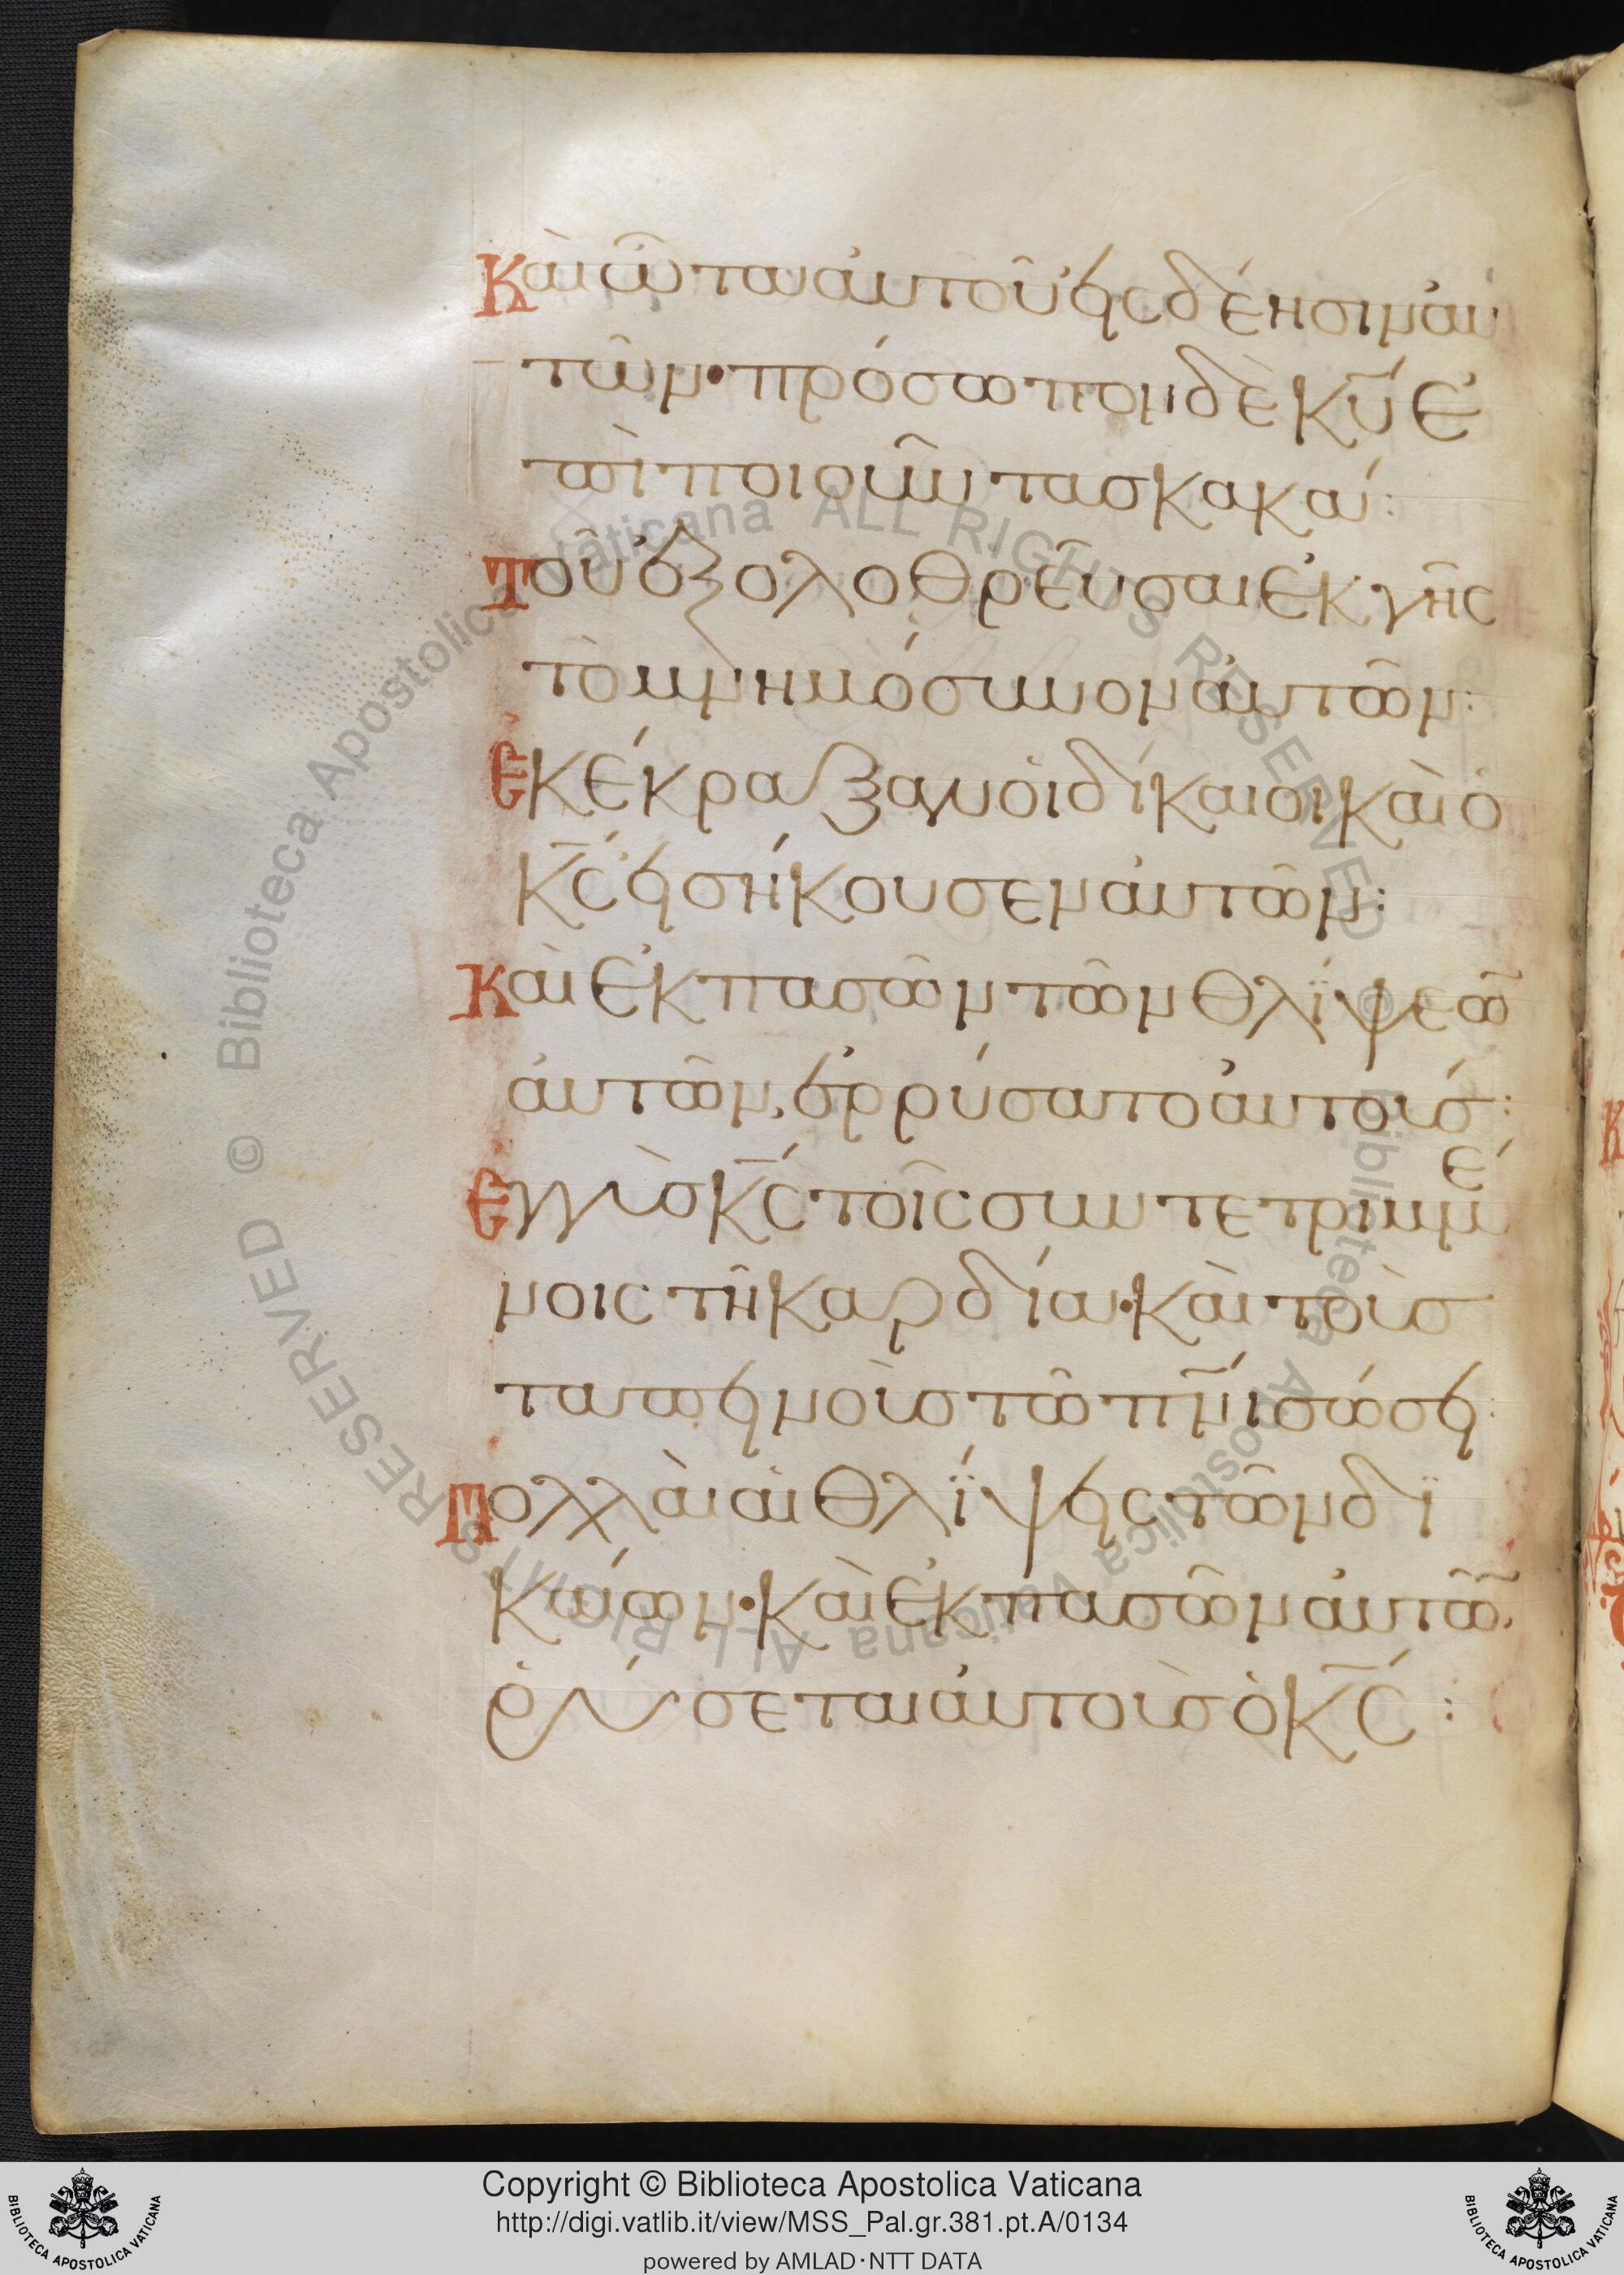 Καὶ ὦτα αὐτοῦ εἰς δέησιν αὐ
τῶν· πρόσωπον δὲ κ̅υ̅ ἐ
πὶ ποιοῦντας κακά:
Τοῦ ἐξολοθρεῦσαι ἐκ γῆς
τὸ μνημόσυνον αὐτῶν:
Ἐκέκραξαν οἱ δίκαιοι καὶ ὁ
κ̅ς̅ εἰσήκουσεν αὐτῶν:
Καὶ ἐκ πασῶν τῶν θλίψεω̅
αὐτῶν, ἐρρύσατο αὐτούς:
Ἐγγὺς κ̅ς̅ τοῖς συντετριμμέ
νοις τῇ καρδία· καὶ τοὺς
ταπεινοὺς τῶ π̅ν̅ι̅ σώσει
Πολλαὶ αἱ θλίψεις τῶν δϊ
καίων· καὶ ἐκ πασῶν αὐτῶ̅,
ῥύσεται αὐτοὺς ὁ κ̅ς̅:
© Biblioteca Apostolica Vaticana ALL RIGHTS RESERVED
© Biblioteca Apostolica Vaticana ALL RIGHTS RESERVED
Copyright © Biblioteca Apostolica Vaticana
http://digi.vatlib.it/view/MSS_Pal.gr.381.pt.A/0134
powered by AMLAD·NTT DATA
BIBLIOTECA APOSTOLICA VATICANA
BIBLIOTECA APOSTOLICA VATICANA